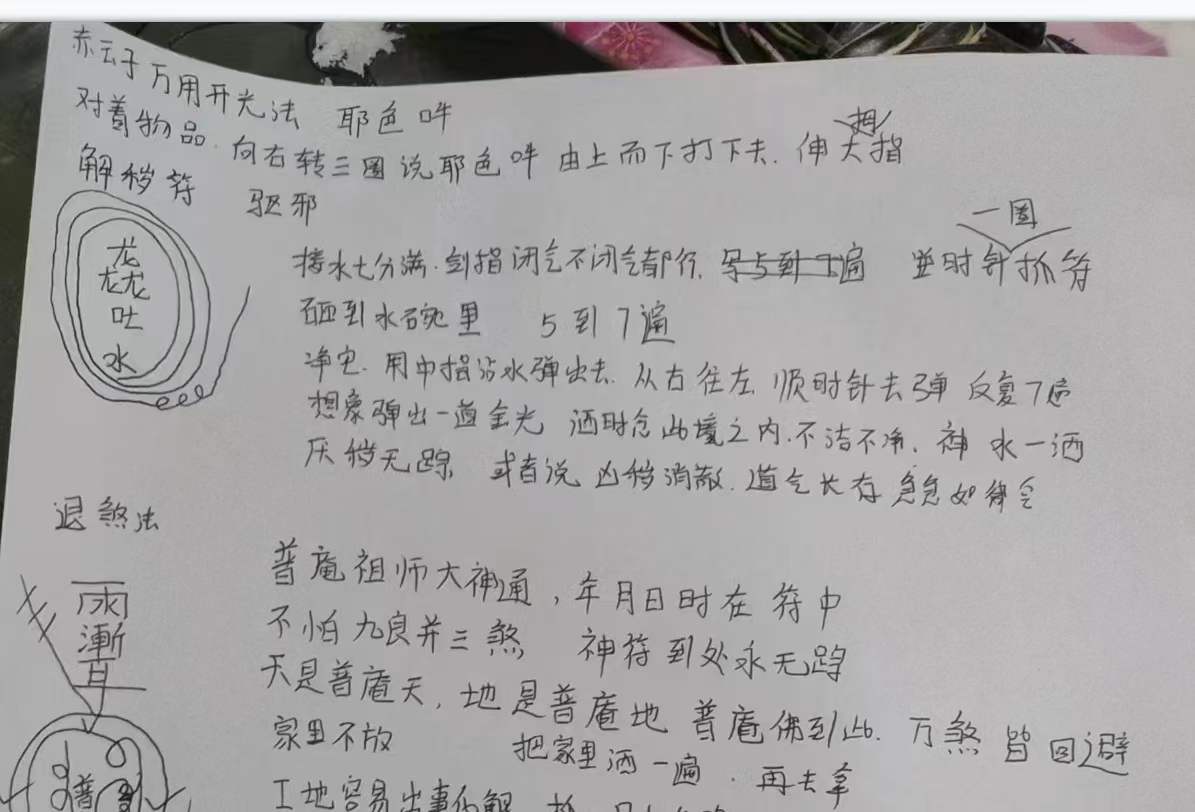 赤云子万用开光法 耶色吽
对着物品.向右转三圈说耶色吽 由上而下打下去.伸大拇指
解秽符 驱邪
龙
龙龙
吐
水
一圈
接水七分满.剑指闭气不闭气都行. 逆时针抓符
砸到水碗里 5到7遍
净宅.用中指沾水弹出去.从右往左 顺时针去弹 反复7遍
想象弹出一道金光 洒时念此境之内.不洁不净.神水一洒
厌秽无踪 或者说 凶秽消散.道气长存 急急如律令
退煞法
普庵祖师大神通,年月日时在符中
不怕九良并三煞 神符到处永无踪
天是普庵天,地是普庵地 普庵佛到此.万煞皆回避
家里不放 把家里洒一遍.再去拿
雨
渐
耳
普
工地容易出事